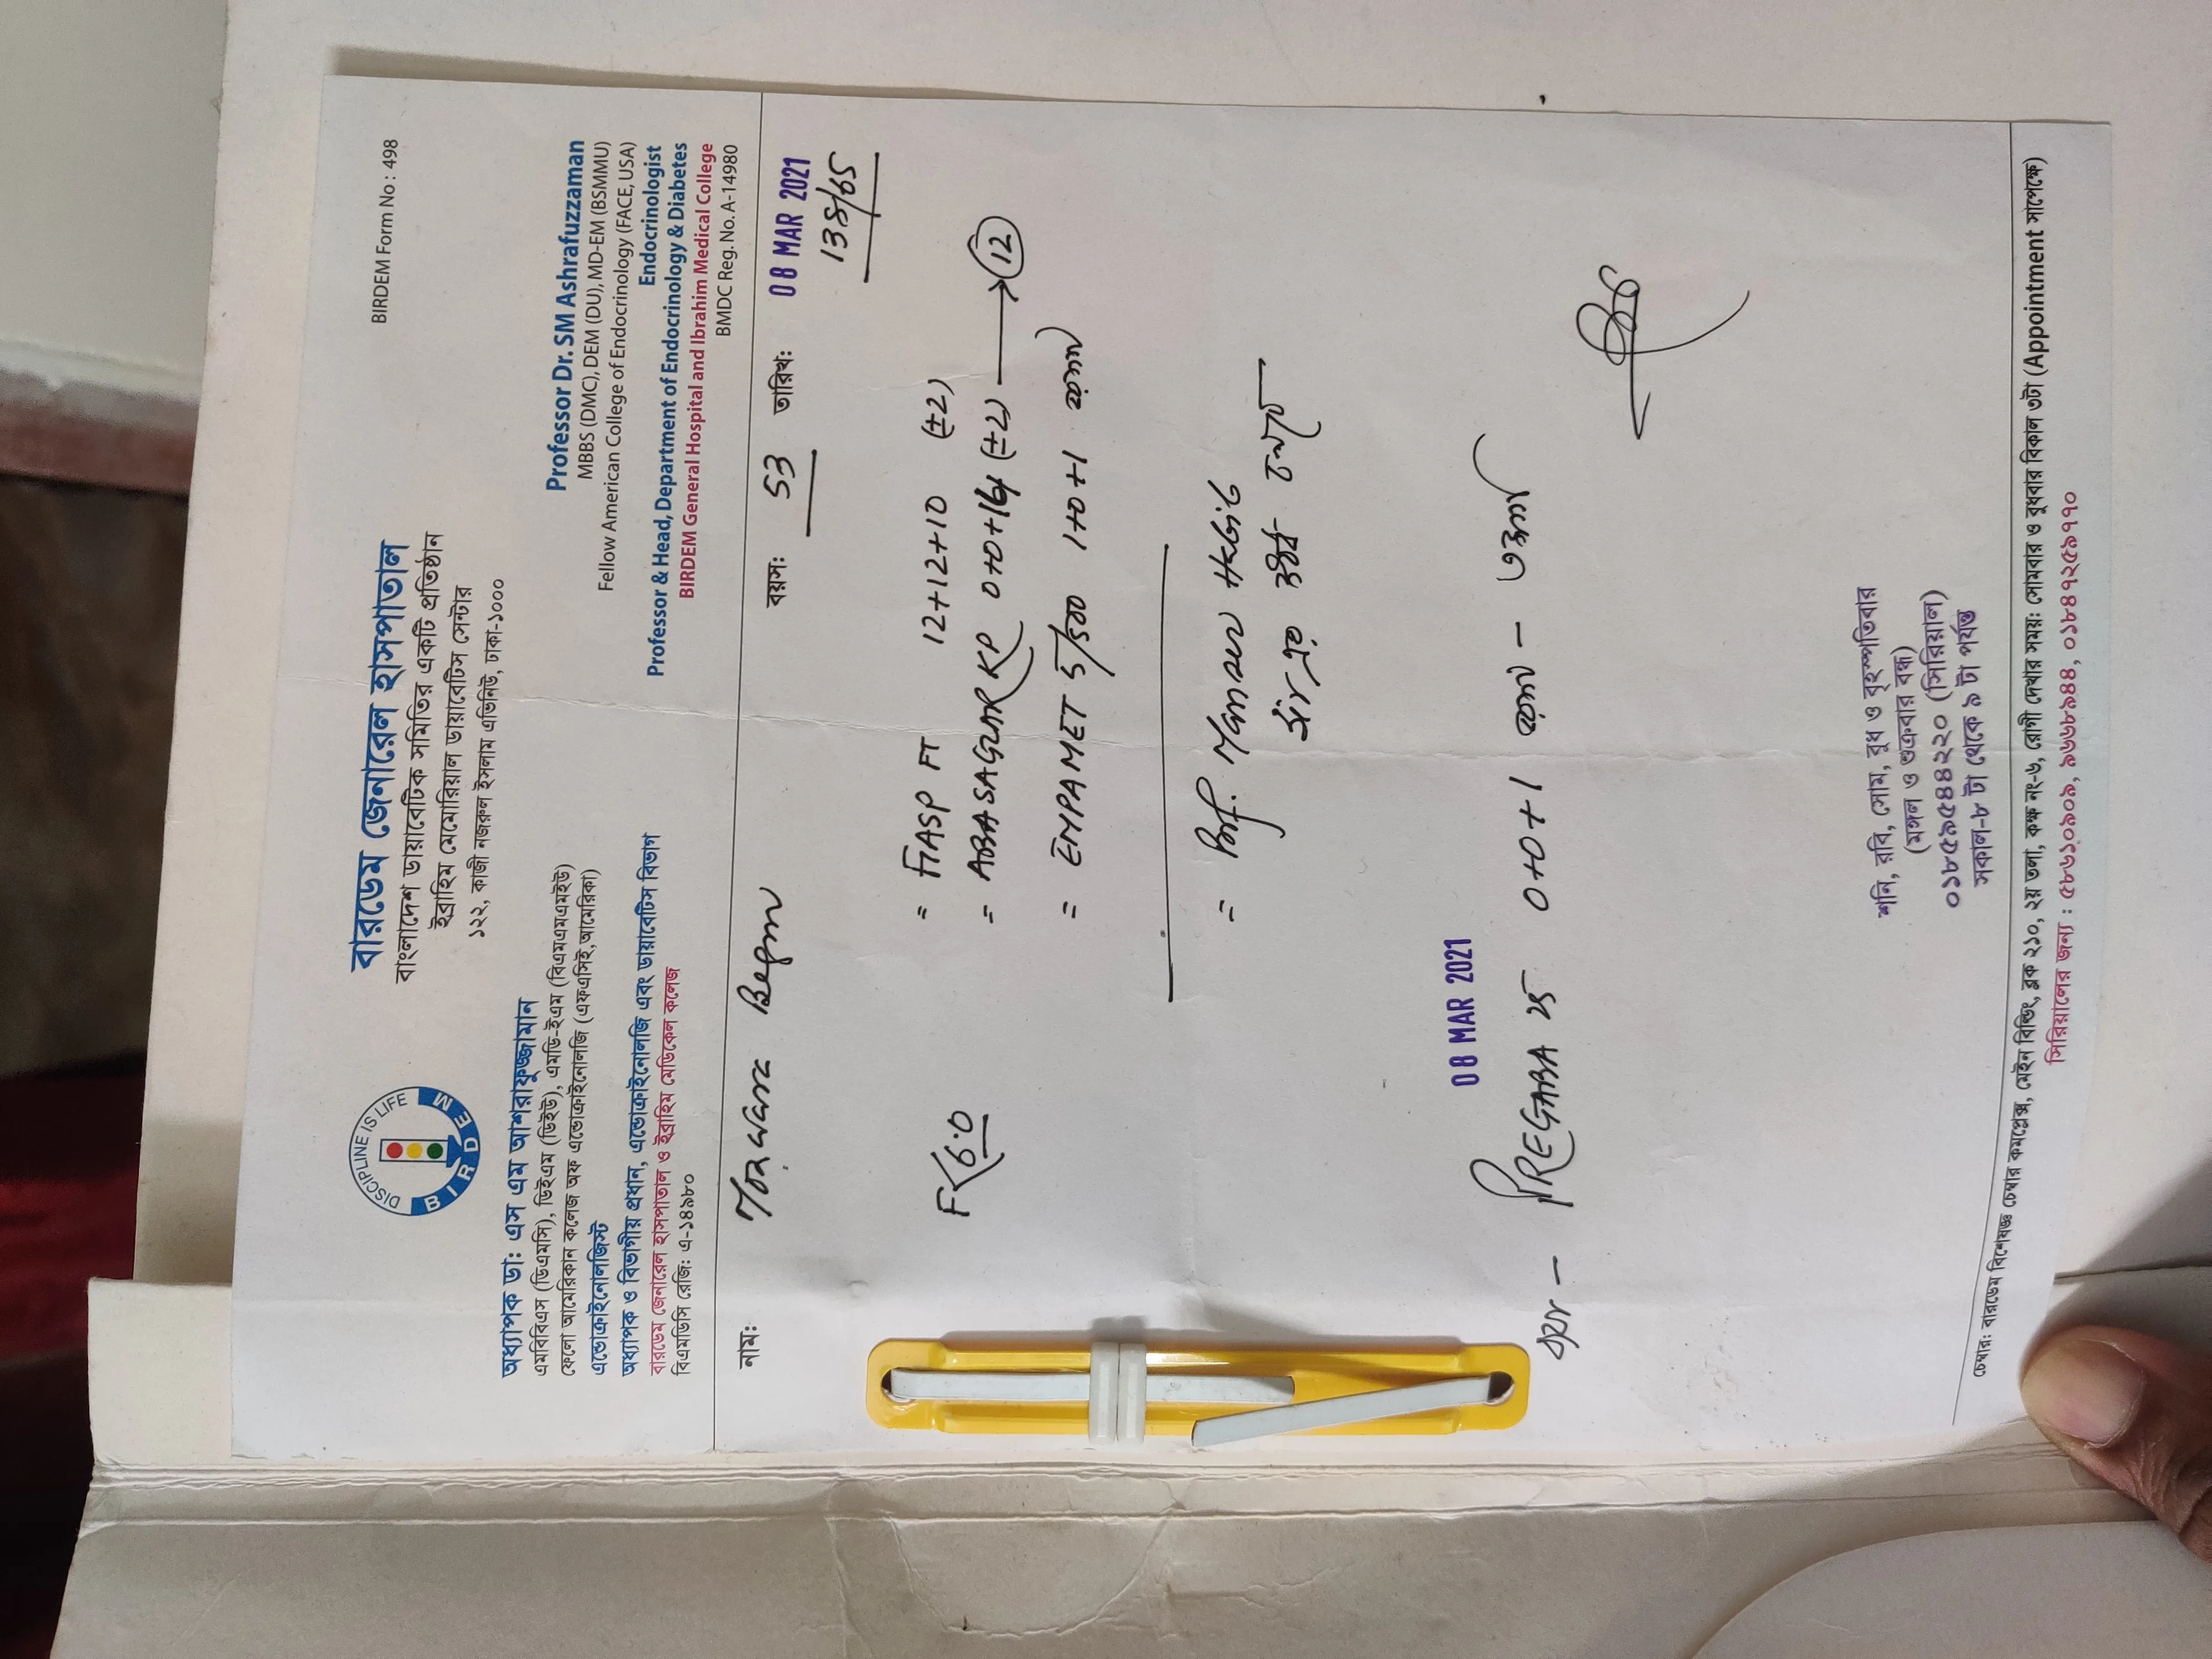 BIRDEM Form No : 498
DISCIPLINE IS LIFE
BIRDEM
বারডেম জেনারেল হাসপাতাল
বাংলাদেশ ডায়াবেটিক সমিতির একটি প্রতিষ্ঠান
ইব্রাহিম মেমোরিয়াল ডায়াবেটিস সেন্টার
১২২, কাজী নজরুল ইসলাম এভিনিউ, ঢাকা-১০০০
অধ্যাপক ডা: এস এম আশরাফুজ্জামান
এমবিবিএস (ডিএমসি), ডিইএম (ডিইউ), এমডি-ইএম (বিএমএমইউ)
ফেলো আমেরিকান কলেজ অফ এন্ডোক্রাইনোলজি (এফএসিই,আমেরিকা)
এন্ডোক্রাইনোলজিস্ট
অধ্যাপক ও বিভাগীয় প্রধান, এন্ডোক্রাইনোলজি এবং ডায়াবেটিস বিভাগ
বারডেম জেনারেল হাসপাতাল ও ইব্রাহিম মেডিকেল কলেজ
বিএমডিসি রেজি: এ-১৪৯৮০
Professor Dr. SM Ashrafuzzaman
MBBS (DMC), DEM (DU), MD-EM (BSMMU)
Fellow American College of Endocrinology (FACE, USA)
Endocrinologist
Professor & Head, Department of Endocrinology & Diabetes
BIRDEM General Hospital and Ibrahim Medical College
BMDC Reg. No. A-14980
নাম: Begum বয়স: 53 তারিখ: 08 MAR 2021
138/65
= FIASP FT 12+12+10 (±2)
F<6.0
= ABASAGLAR KP 0+0+14 (±2) → 12
= EMPAMET 5/500 1+0+1
= Prof. Habib
08 MAR 2021
PREGABA 25 0+0+1
শনি, রবি, সোম, বুধ ও বৃহস্পতিবার
(মঙ্গল ও শুক্রবার বন্ধ)
০১৮৫৯৫৪৪২২০ (সিরিয়াল)
সকাল-৮ টা থেকে ৯ টা পর্যন্ত
চেম্বার: বারডেম বিশেষজ্ঞ চেম্বার কমপ্লেক্স, মেইন বিল্ডিং, ব্লক ২১০, ২য় তলা, কক্ষ নং-৬, রোগী দেখার সময়: সোমবার ও বুধবার বিকাল ৩টা (Appointment সাপেক্ষে)
সিরিয়ালের জন্য : ৫৮৬১০৯০৯, ৯৬৬৮৯৪৪, ০১৮৪৭২৫৯১৭০